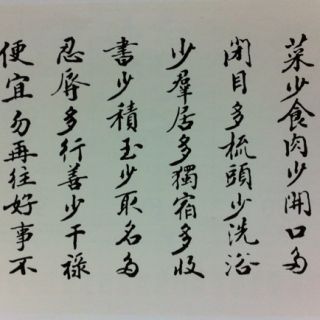 菜少食肉少開口多
閉目多梳頭少洗浴
少羣居多獨宿多收
書少積玉少取名多
忍辱多行善少干祿
便宜勿再往好事不